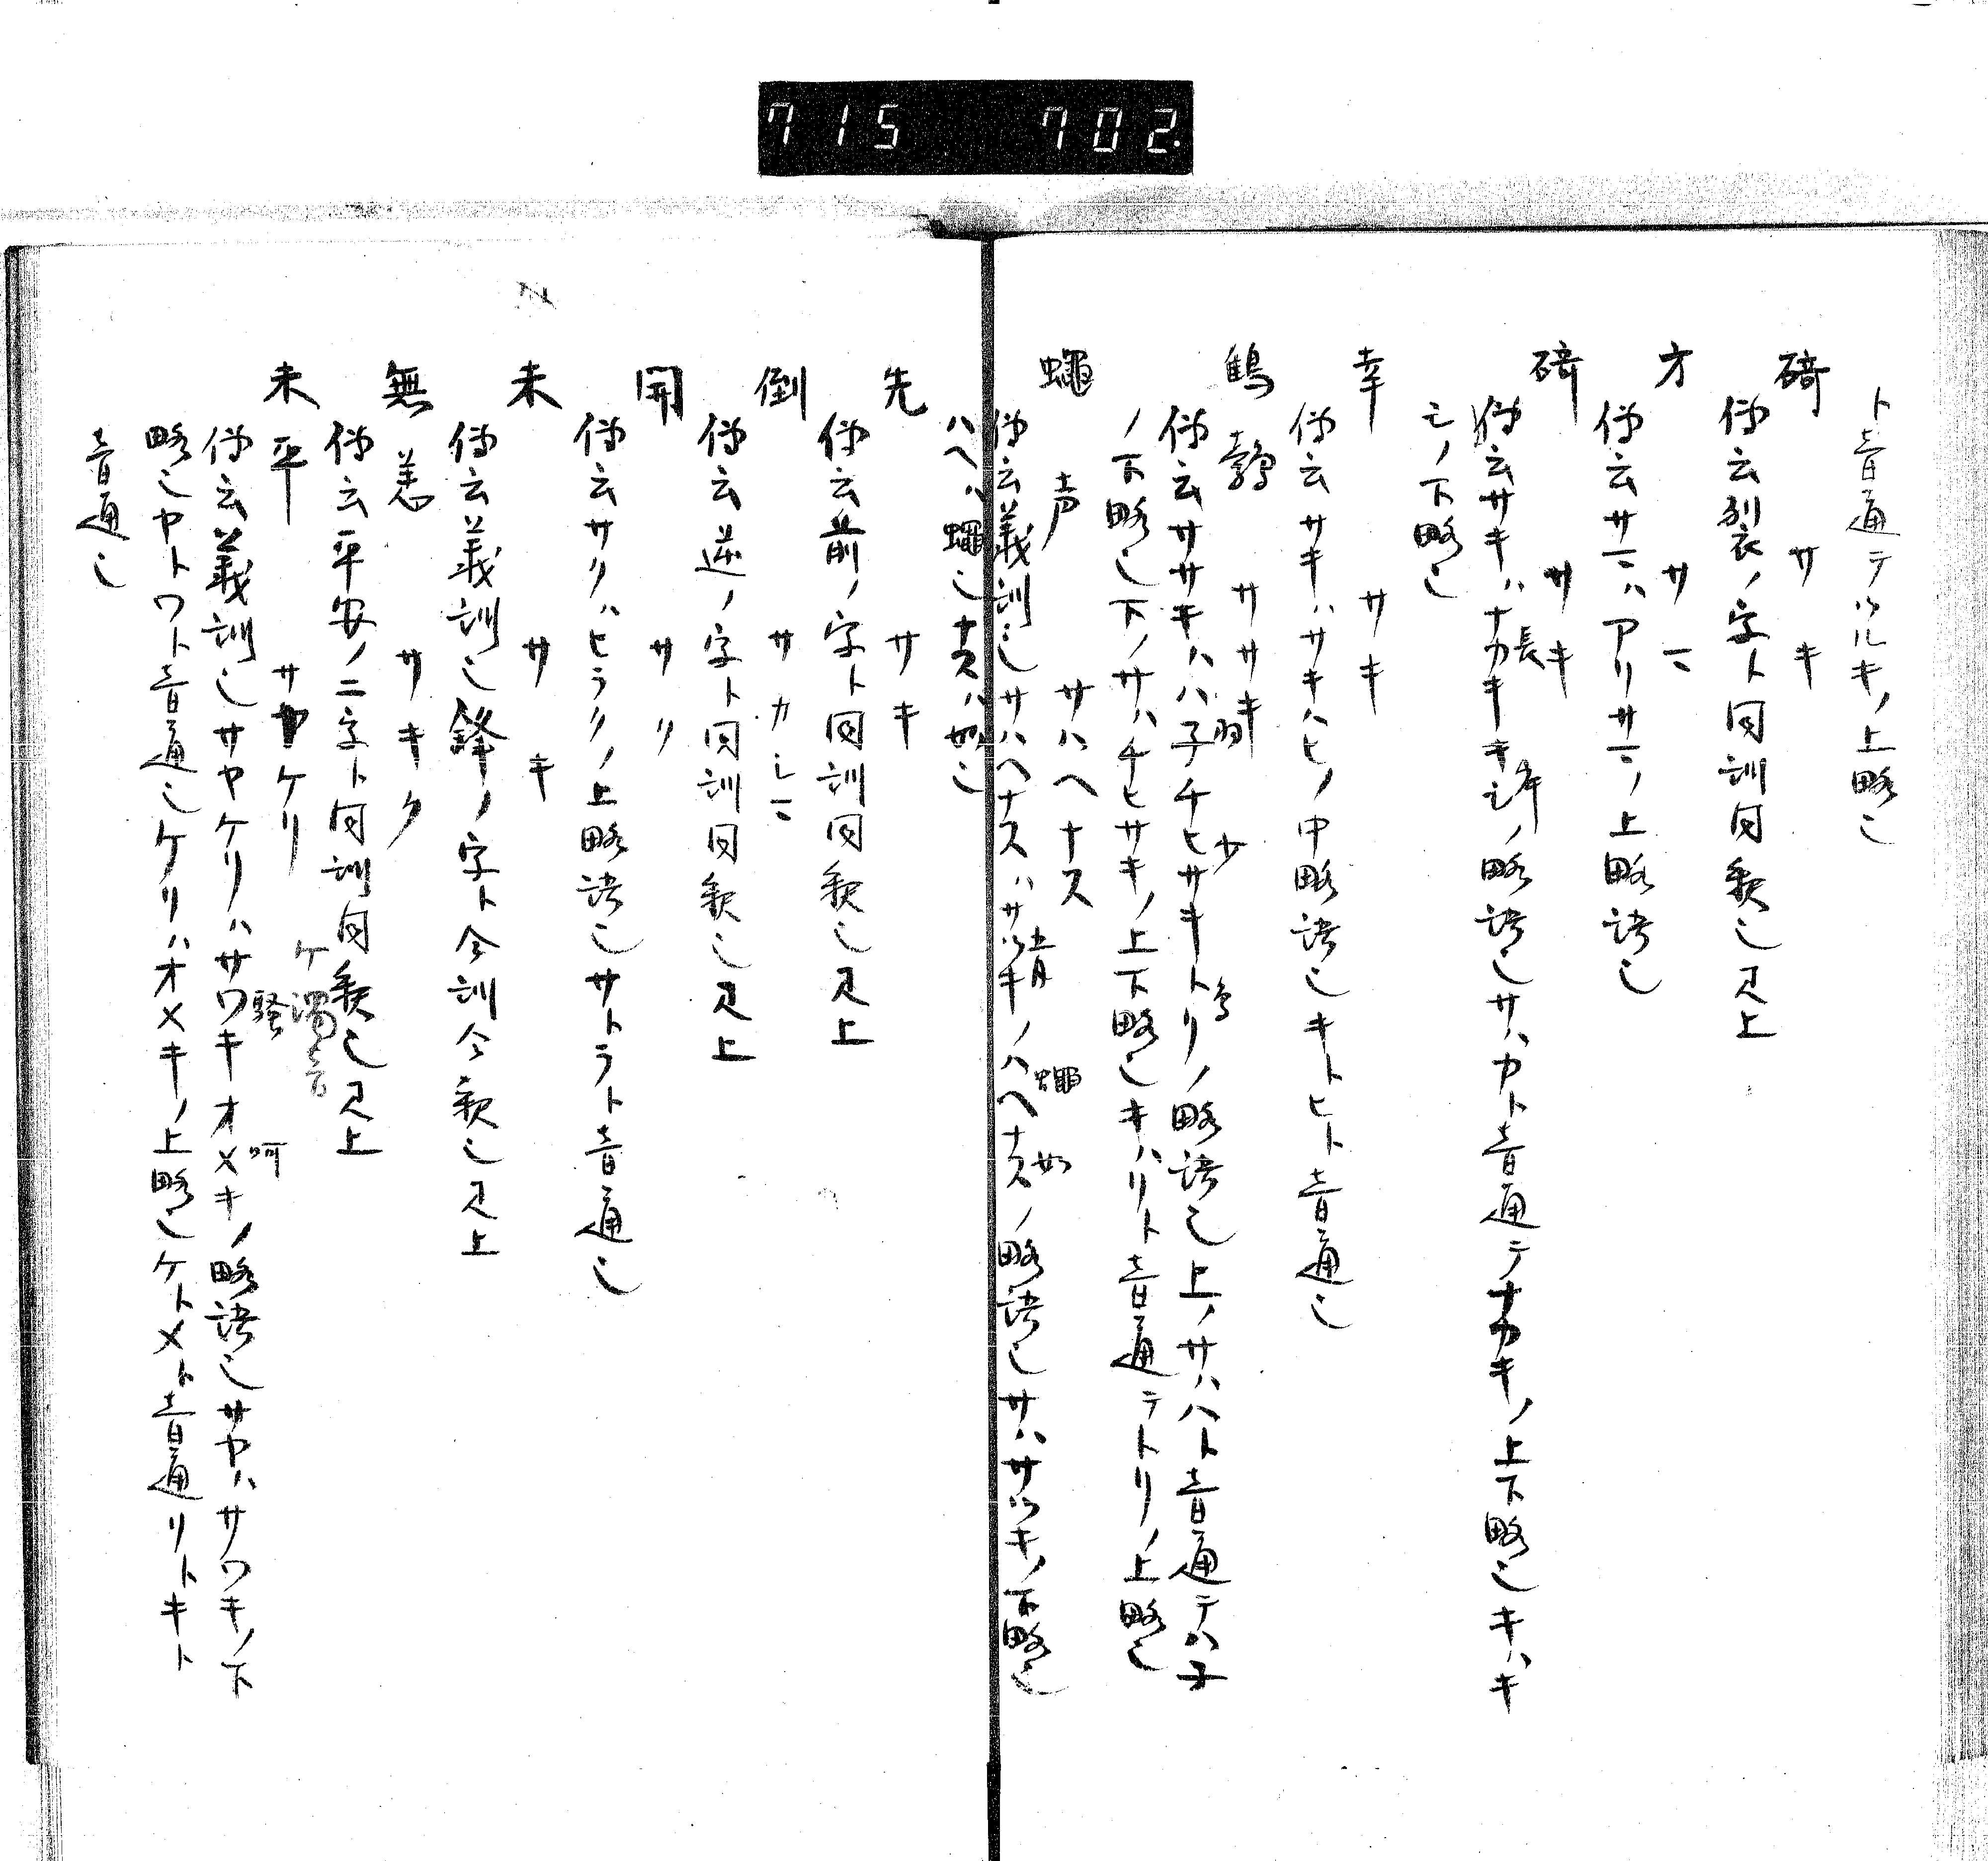 715 702.
ト音通テツルキノ上略也
碕 サキ
仰云裂ノ字ト同訓同釈也見上
方 サニ
仰云サニハアリサニノ上略語也
碕 サキ
仰云サキハナカキキシノ略語也サハカト音通テナカキノ上下略也キハキ
長 岸
シノ下略也
幸 サキ
仰云サキハサキハヒノ中略語也キトヒト音通也
鷦鷯 ササキ
仰云ササキハハ子チヒサキトリノ略語也上ノサハハト音通テハ子
羽 少 鳥
ノ下略也下ノサハチヒサキノ上下略也キハリト音通テトリノ上略也
蠅声 サハヘナス
仰云義訓也サハヘナスハサツキノハヘナスノ略語也サハサツキノ下略也
蠅 如
ハヘハ蠅也ナスハ如也
先 サキ
仰云前ノ字ト同訓同釈也見上
倒 サカシニ
仰云逆ノ字ト同訓同釈也見上
開 サク
仰云サクハヒラクノ上略語也サトラト音通也
末 サキ
仰云義訓也鋒ノ字ト今訓今釈也見上
無恙 サキク
仰云平安ノ二字ト同訓同釈也見上
未平 サヤケリ
ケ濁音
仰云義訓也サヤケリハサワキオメキノ略語也サヤハサワキノ下
騒 呵
略也ヤトワト音通也ケリハオメキノ上略也ケトメト音通リトキト
音通也